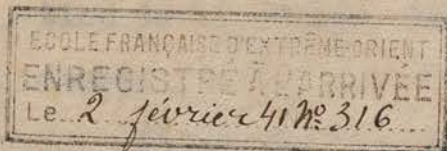 ECOLE FRANÇAISE D'EXTRÊME-ORIENT
ENREGISTRÉ À L'ARRIVÉE
Le 2 février 41 Nº 316